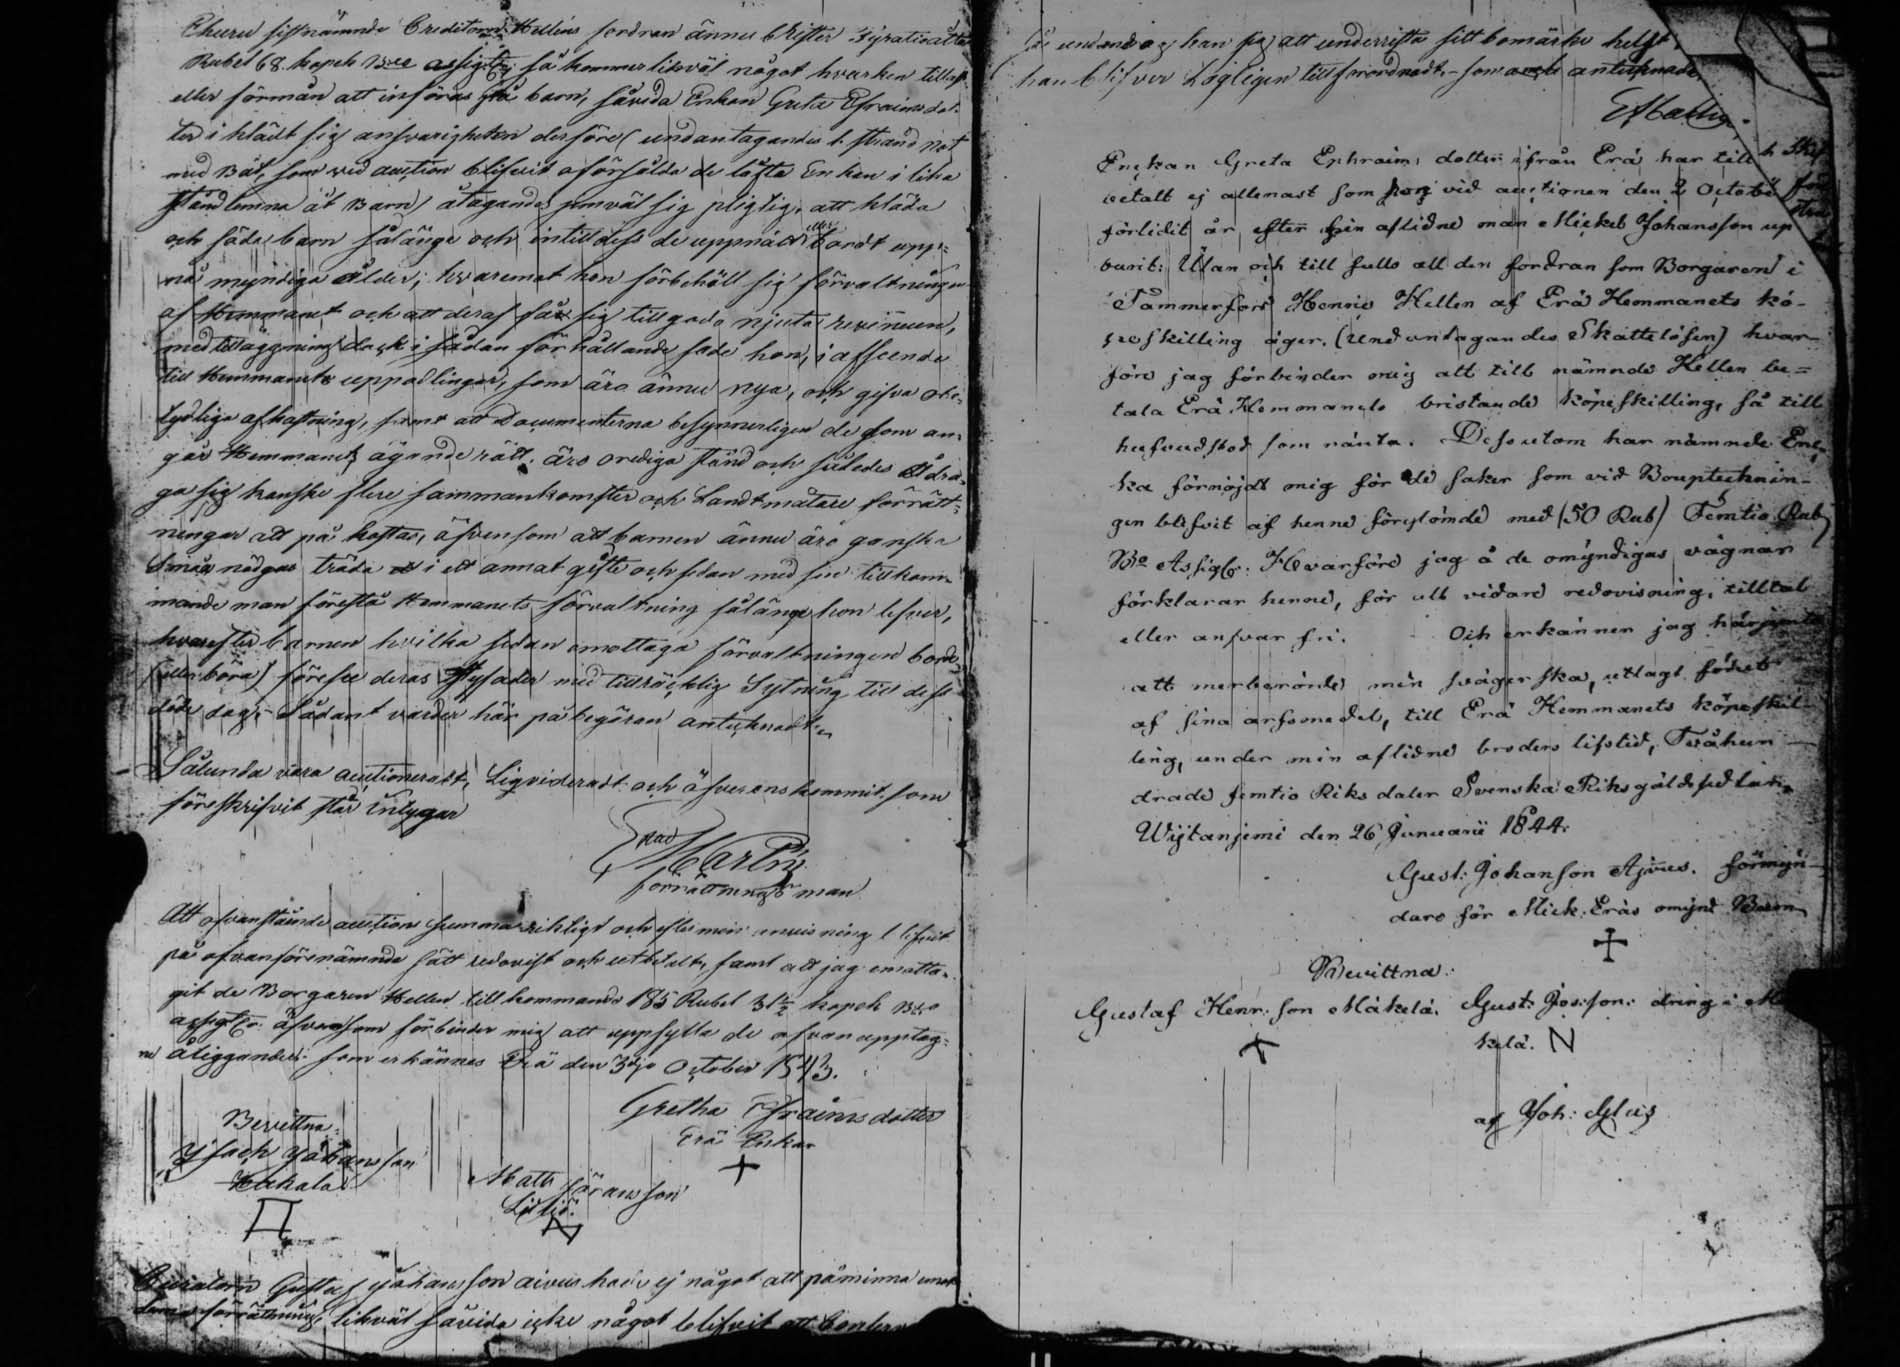 Ehuru sistnämnde Creditorn Hellens fordran ännu brister Fyratioåtta
Rubel 68. kopek Bco assigtr så kommer likväl något hvarken tillsk
eller förmån att införas på barn, såvida Enkan Greta Efraimsdot-
ter i klädt sig ansvarigheten derföre (undantagandes 1 strand not
med Båt, som vid auction blifvit oförsålda de låfte Enkan i lika
stånd lemna åt Barn) åtagande jemväl sig pligtig, att kläda
och föda barn sålänge och intilldess de uppnådt eller bordt upp-
nå myndiga ålder; hvaremot hon förbehöll sig förvaltningen
af Hemmanet och att deraf få sig tillgodo njuta revenuen,
med tilläggning dock i sådan förhållande sade hon, i afseende
till Hemmanets uppodlingar, som äro ännu nya, och gifva obe-
tydliga afkastning, samt att Documenterna besynnerligen de som an-
går Hemmanets ägande rätt. äro orediga stånd och således åtdra-
ga sig kanske flere sammankomster och Landtmätare förrätt-
ningar att på kostas, äfvensom att barnen ännu äro ganska
Små nödgas träda i ett annat gifte och sedan med sin tillkom-
mande man förestå Hemmanets förvaltning sålänge hon lefver,
hvarefter barnen hvilka sedan emottaga förvaltningen borde
(eller böra) förese deras Styfader med tillräcklig Sytning till dess
döde dag; Sådant varder här på begäran antecknadt.
Sålunda vara auctioneradt, Liqvideradt och öfverenskommit som
föreskrifvit står intygar
Martin
förrättningsman
Att ofvanstående auction summa riktigt och efter min anvisning blifvit
på ofvanförenämnde sätt redovist och utbetalt, samt att jag emotta-
git de Borgaren Hellen tillkommande 185 Rubel 31½ kopek Bco
assigtr. äfvensom förbinder mig att uppfylla de ofvan upptag-
ne åliggander. som erkännes Erä den 3dje October 1843.
Gretha Efraimsdotter
Erä Enkan
Bevittna:
Isach Johansson
Hakala
Matts Göransson
Curatorn Gustaf Johansson aivus hade ej något att påminna emot
denna förrättning, likväl såvida icke något blifvit
undandog han sig att underrista sitt bomärke helst
han blifver Lagligen till förordnadt, som och antecknades
Enckan Greta Ephraims dotter ifrån Erä har till
betalt ej allenast som hon vid auctionen den 2 October
förlidit år, efter sin aflidne man Mickel Johansson up
burit: Utan och till fullo all den fordran som Borgaren i
Tammerfors Henric Hellen af Erä Hemmanets kö-
peskilling äger. (undantagandes Skattelösen) hvar-
före jag förbinder mig att till nämnde Hellen be-
tala Erä Hemmanets bristande köpeskilling, så till
hufvudstod som ränta. Dessutom har nämnde Enc-
ka förnöjdt mig för de saker som vid Boupteckni­n-
gen blifvit af henne förglömde med (50 Rub) Femtio Rub
Bco Assigtr. Hvarföre jag å de omyndigas vägnar
förklarar henne, för all vidare redovisning, tilltal
eller ansvar fri. Och erkänner jag härjemte
att merberörde min svägerska, utlagt
af sina arfsmedel, till Erä Hemmanets köpeskil-
ling, under min aflidne broders lifstid, Tvåhun-
drade femtio Riksdaler Svenska Riksgäldssedlar.
Wijtaniemi den 26 Januarii 1844.
Gust: Johanson Ajvus. förmyn-
dare för Mick. Eräs omynd Barn
Bewittna:
Gustaf Henr:son Mäkelä. Gust: Jos:son: dräng i Mä
kelä. N
af Joh: